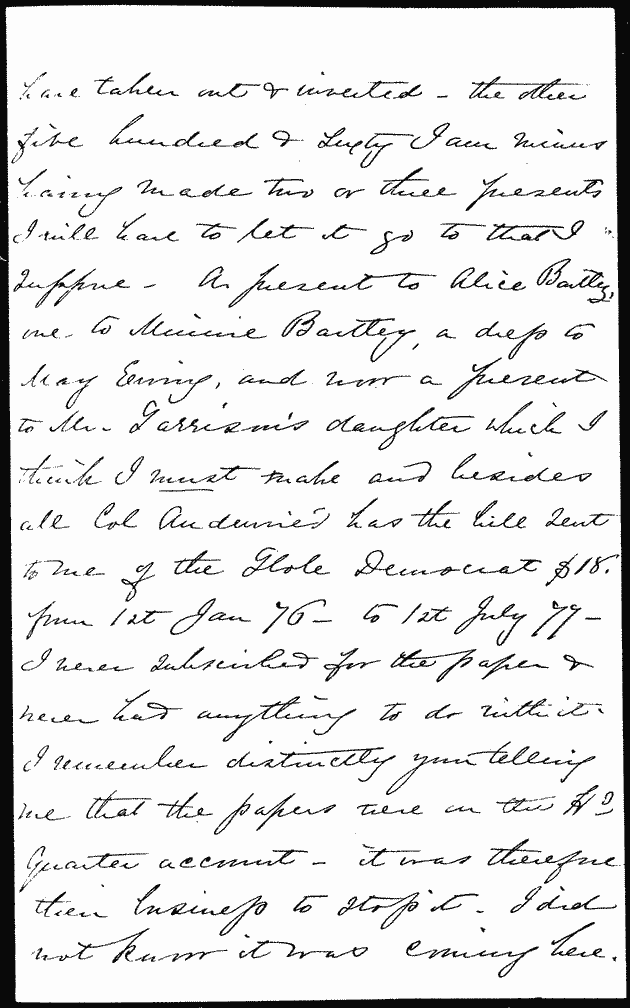 have taken out & invested - the other
five hundred & sixty I am minus
having made two or three presents
I will have to let it go to that I
suppose - A present to Alice Bartley,
one to Minnie Bartley, a dress to
May Ewing, and now a present
to Mr. Garrison's daughter which I
think I must make and besides
all Col has the bill sent
to me of the Globe Democrat $18.
from 1st Jan 76 - to 1st July 77 -
I never subscribed for the paper &
never had anything to do with it.
I remember distinctly your telling
me that the papers were on the Hd
Quarter account - it was therefore
their business to stop it. I did
not know it was coming here.